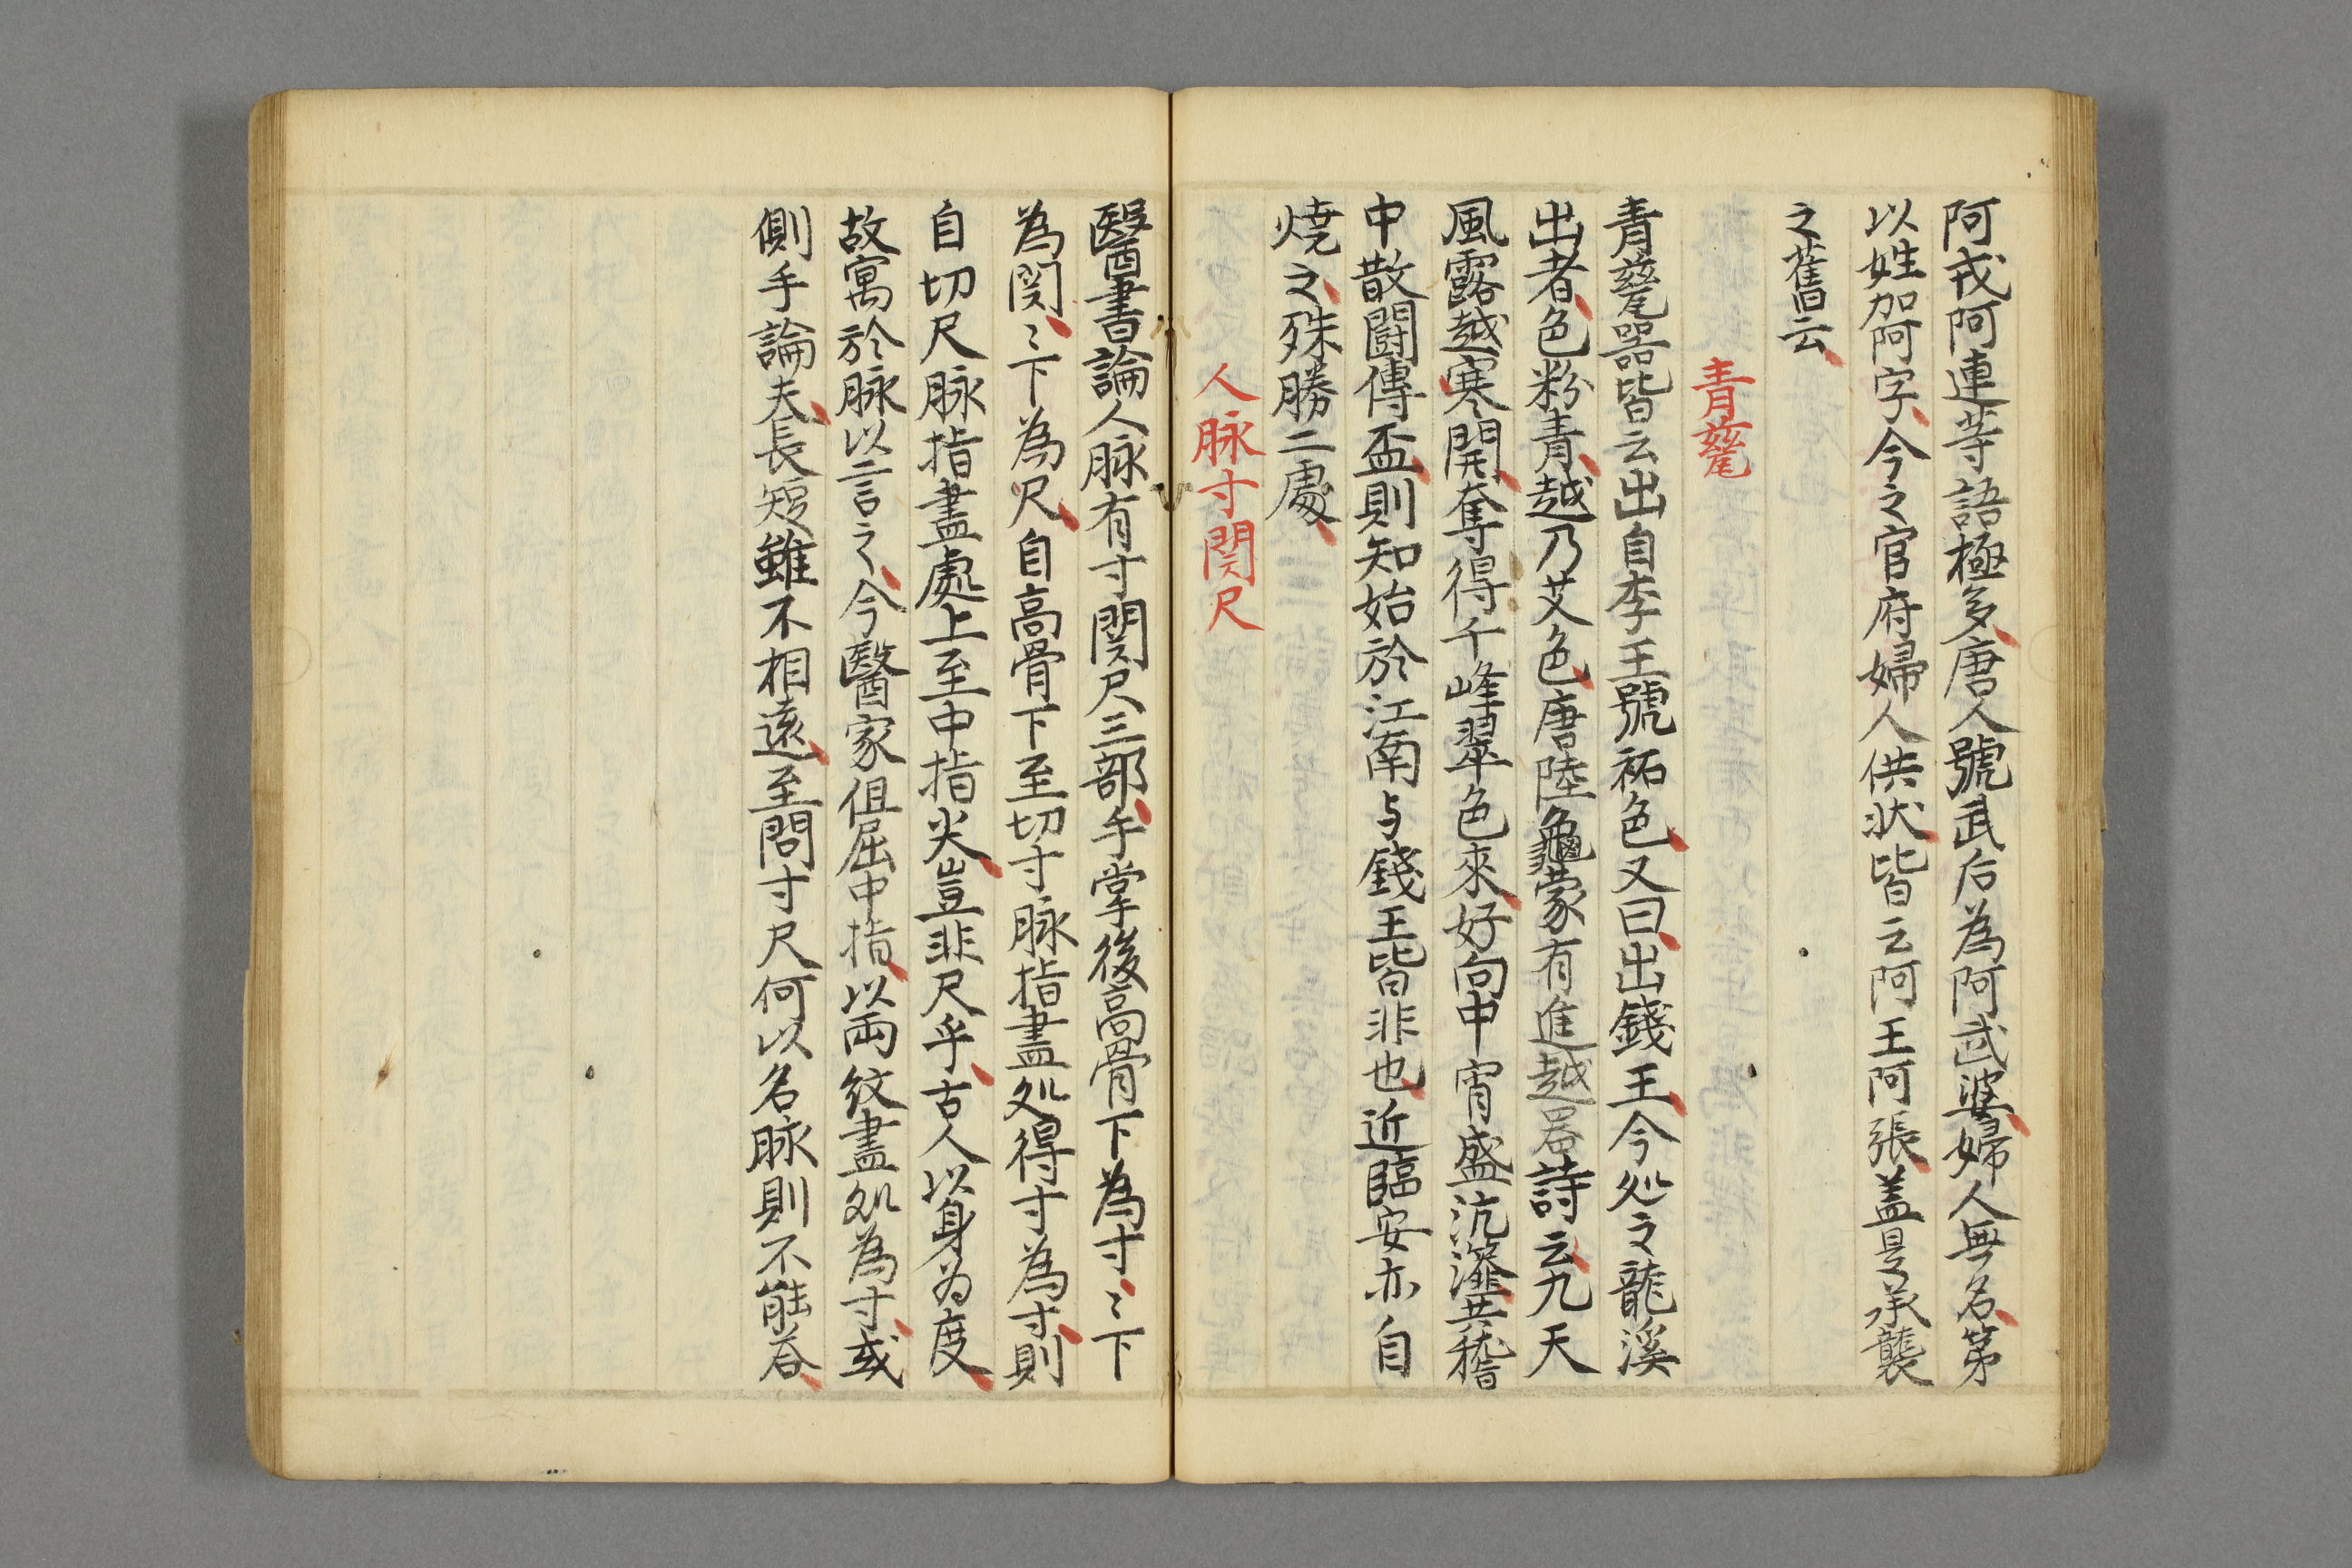 阿戎阿連等語極多唐人號武后為阿武婆婦人無名第
以姓加阿字今之官府婦人供状皆云阿王阿張盖是承襲
之舊云
青甆
青甆器皆云出自李王號祕色又曰出錢王今処之龍溪
出者色粉青越乃艾色唐陸龜蒙有進越器詩云九天
風露越寒開奪得千峰翠色來好向中宵盛沆瀣共嵇
中散闘傳盃則知始於江南与錢王皆非也近臨安亦自
焼之殊勝二處
人脉寸関尺
醫書論人脉有寸関尺三部手掌後高骨下為寸〻下
為関〻下為尺自高骨下至切寸脉指盡処得寸為寸則
自切尺脉指盡處上至中指尖豈非尺乎古人以身为度
故寓於脉以言之今醫家但屈中指以兩紋盡処為寸或
側手論夫長短雖不相遠至問寸尺何以名脉則不能荅